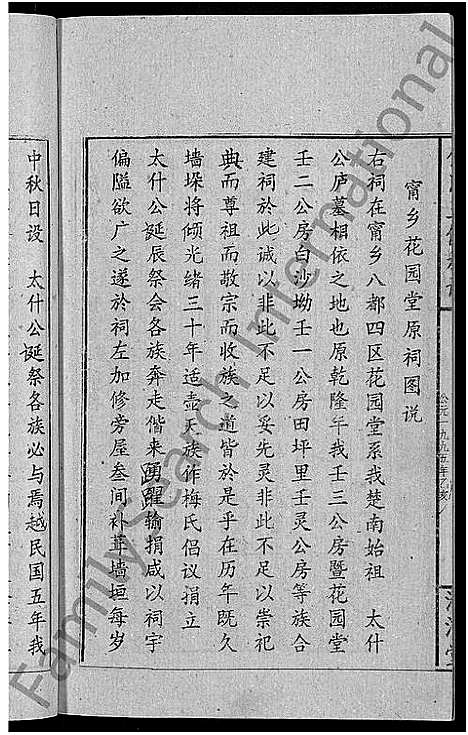 甯乡花园堂原祠图说
右祠在甯乡八都四区花园堂系我楚南始祖 太什
公庐墓相依之地也原乾隆年我壬三公房暨花园堂
壬二公房白沙坳壬一公房田坪里壬灵公房等族合
建祠於此诚以非此不足以妥先灵非此不足以崇祀
典而尊祖而敬宗而收族之道皆於是乎在历年既久
墙垛将倾光绪三十年适壶天族作梅氏倡议捐立
太什公诞辰祭会各族奔走偕来踴躍输捐咸以祠宇
偏隘欲广之遂於祠左加修旁屋叁间补葺墙垣每岁
中秋日设 太什公诞祭各族必与焉越民国五年我
公元一九九五年乙亥
FamilySearch International